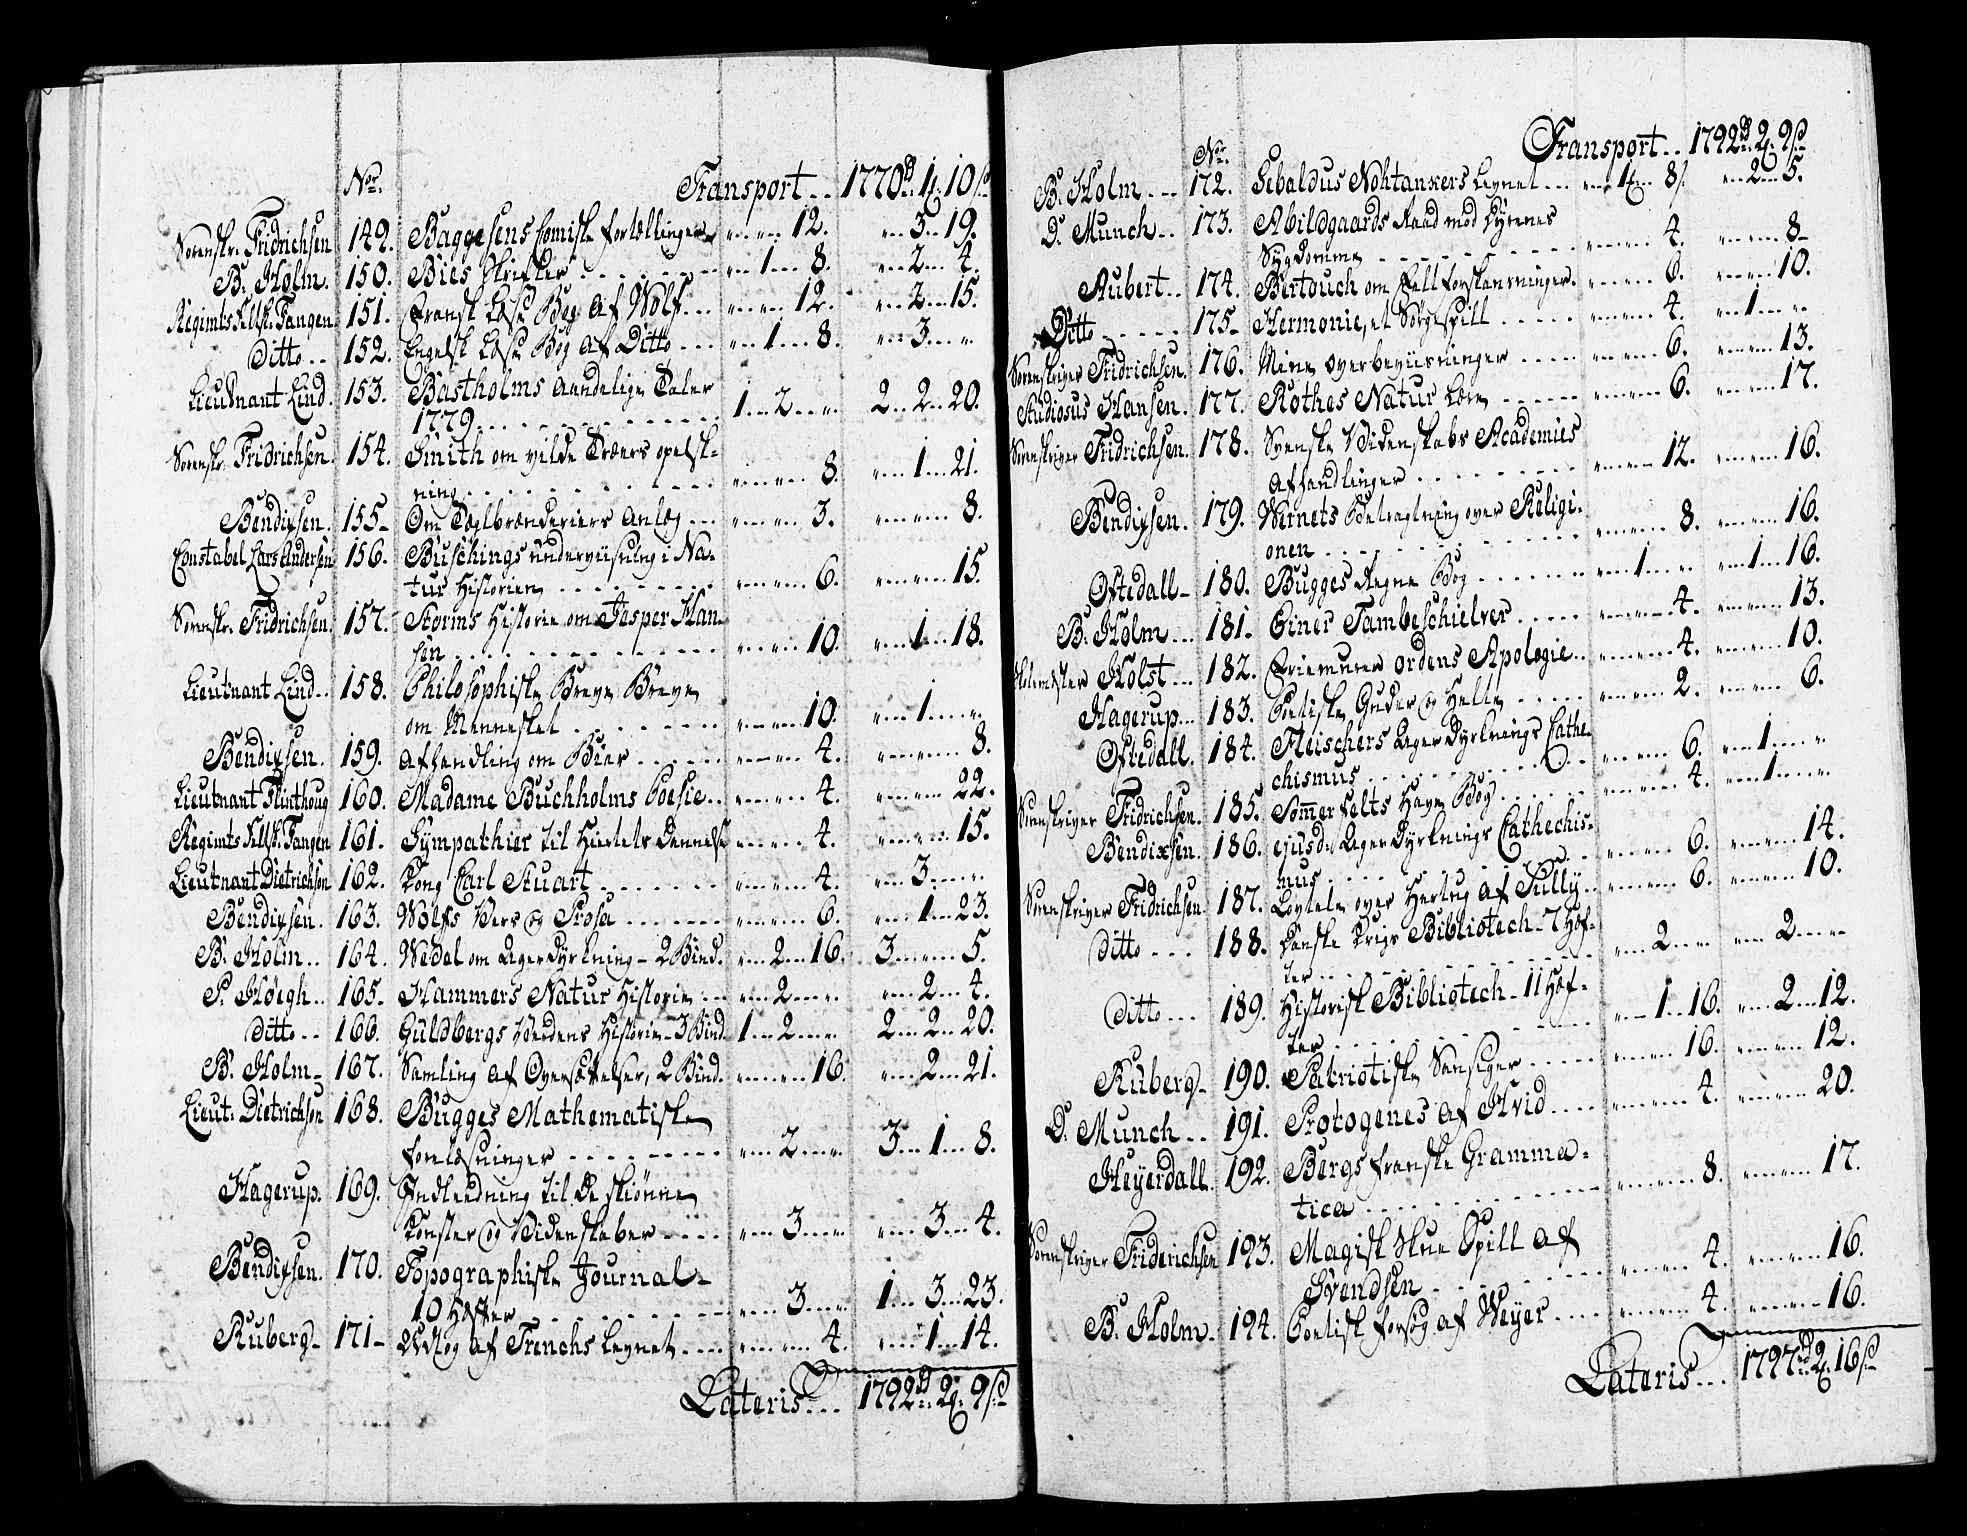 No. Transport.. 1770 rd 1 10 s
Sorenskr. Fridrichsen 149. Baggesens Comiske fortællinger " " 12. " 3 19.
B. Holm. 150. Bies Skrifter " 1 8. " 2 4.
Regimts feltsk. Fangen 151. Fransk Læse Bog af Wolf " " 12. " 2 15.
Ditto 152. Engelsk Læse Bog af Ditto " 1 8. " 3 "
Lieutnant Lind. 153. Bastholms Aandelige Taler
1779. 1 2 " 2 2 20.
Sorenskr. Fridrichsen. 154. Smith om vilde Træers opelsk-
ning " " 8. " 1 21.
Bendixsen. 155. Om Teglbrænderiers Anlæg " " 3. " " 8.
Constabel Lars Andersen 156. Buschings underviisning i Na-
tur Historien " " 6. " " 15.
Sorenskr. Fridrichsen. 157. Storms Historie om Jesper Han-
sen " " 10. " 1 18.
Lieutnant Lind 158. Philosophiske Breve Breve
om Mennesket " " 10. " 1 "
Bendixsen. 159. Afhandling om Bier " " 4. " " 8.
Lieutnant Flinthoug 160. Madame Buchholms Poesie " " 4. " " 22.
Regimts Feltsk. Fangen 161. Sympathier til Hiertets Dannelse " " 4. " " 15.
Lieutnant Dietrichson 162. Kong Carl Stuart " " 4. " 3 "
Bendixsen. 163. Wolfs Vers og Prosa " " 6. " 1 23.
B. Holm 164. Wedel om Ager Dyrkning - 2 Bind. " 2 16. 3 " 5.
P. Høegh 165. Hammers Natur Historie " 2 " " 2 4.
Ditto 166. Guldbergs Verdens Historie - 3 Bind. 1 2 " 2 2 20.
B. Holm 167. Samling af Oversættelser, 2 Bind. " " 16. " 2 21.
Lieut: Dietrichson 168. Bugges Mathematiske
forelæsninger " 2 " 3 1 8.
Hagerup. 169. Indledning til De skiønne
Konster og Videnskaber " 3 " " 3 4.
Bendixsen. 170. Topographiske Journal -
10 Hefter " 3 " 1 3 23.
Ruberg 171 Udtog af Trencks Levnet " " 4. " 1 14.
Lateris 1792 rd 2 9 s
No. Transport.. 1792 rd 2 9 s
B. Holm 172. Sebaldus Nohtankers Levnet " 1 8 " 2 5.
D. Munch 173. Abildgaards Raad mod Dyrenes
Sygdomme " " 4. " " 8
Aubert 174. Bertouch om feltforskansninger. " " 6. " " 10.
Ditto 175 Hermonie, et Sørgespill " " 4. " 1 "
Sorenskriver Fridrichsen. 176. Mine overbeviisninger " " 6. " " 13.
Studiosus Hansen. 177. Rothes Natur Lære " " 6. " " 17.
Sorenskriver Fridrichsen. 178. Svenske Videnskabs Academies
Afhandlinger " " 12. " " 16.
Bendixsen. 179. Vernets Betragtning over Religi-
onen " " 8. " " 16.
Oftedall 180. Bugges Regne Bog " 1 " " 1 16.
B. Holm 181. Einer Tambeschielver " " 4. " " 13.
Holst 182. Friemurer ordens Apologie " " 4. " " 10.
Hagerup 183. Poetiske Guder og Helte " " 2. " " 6.
Oftedall. 184. Fleischers Ager Dyrknings Cathe-
chismus " " 6. " 1 "
Sorenskriver Fridrichsen. 185. Sommerfelts Have Bog " " 4. " 1 "
Bendixsen. 186. ejusd: Ager Dyrknings Cathechis-
mus " " 6. " " 14.
Sorenskriver Fridrichsen. 187. Lovtale over Hertug af Sully " " 6. " " 10.
Ditto 188. Danske Krigs Bibliotech - 7 Hef-
ter " 2 " " 2 "
Ditto 189. Historisk Bibliotech - 11 Hef-
ter " 1 16. " 2 12.
Ruberg 190. Patriotiske Sansiger " " 16. " " 12.
D. Munch 191. Protogenes af Hvid " " 4. " " 20.
Heyerdall. 192. Bergs franske Gramma-
tica " " 8. " " 17.
Sorenskriver Friderichsen 193. Magisk Skue Spill af
Svendsen " " 4. " " 16.
B. Holm 194. Poetisk forsøg af Weyer " " 4. " " 16.
Lateris 1797 rd 2 16 s